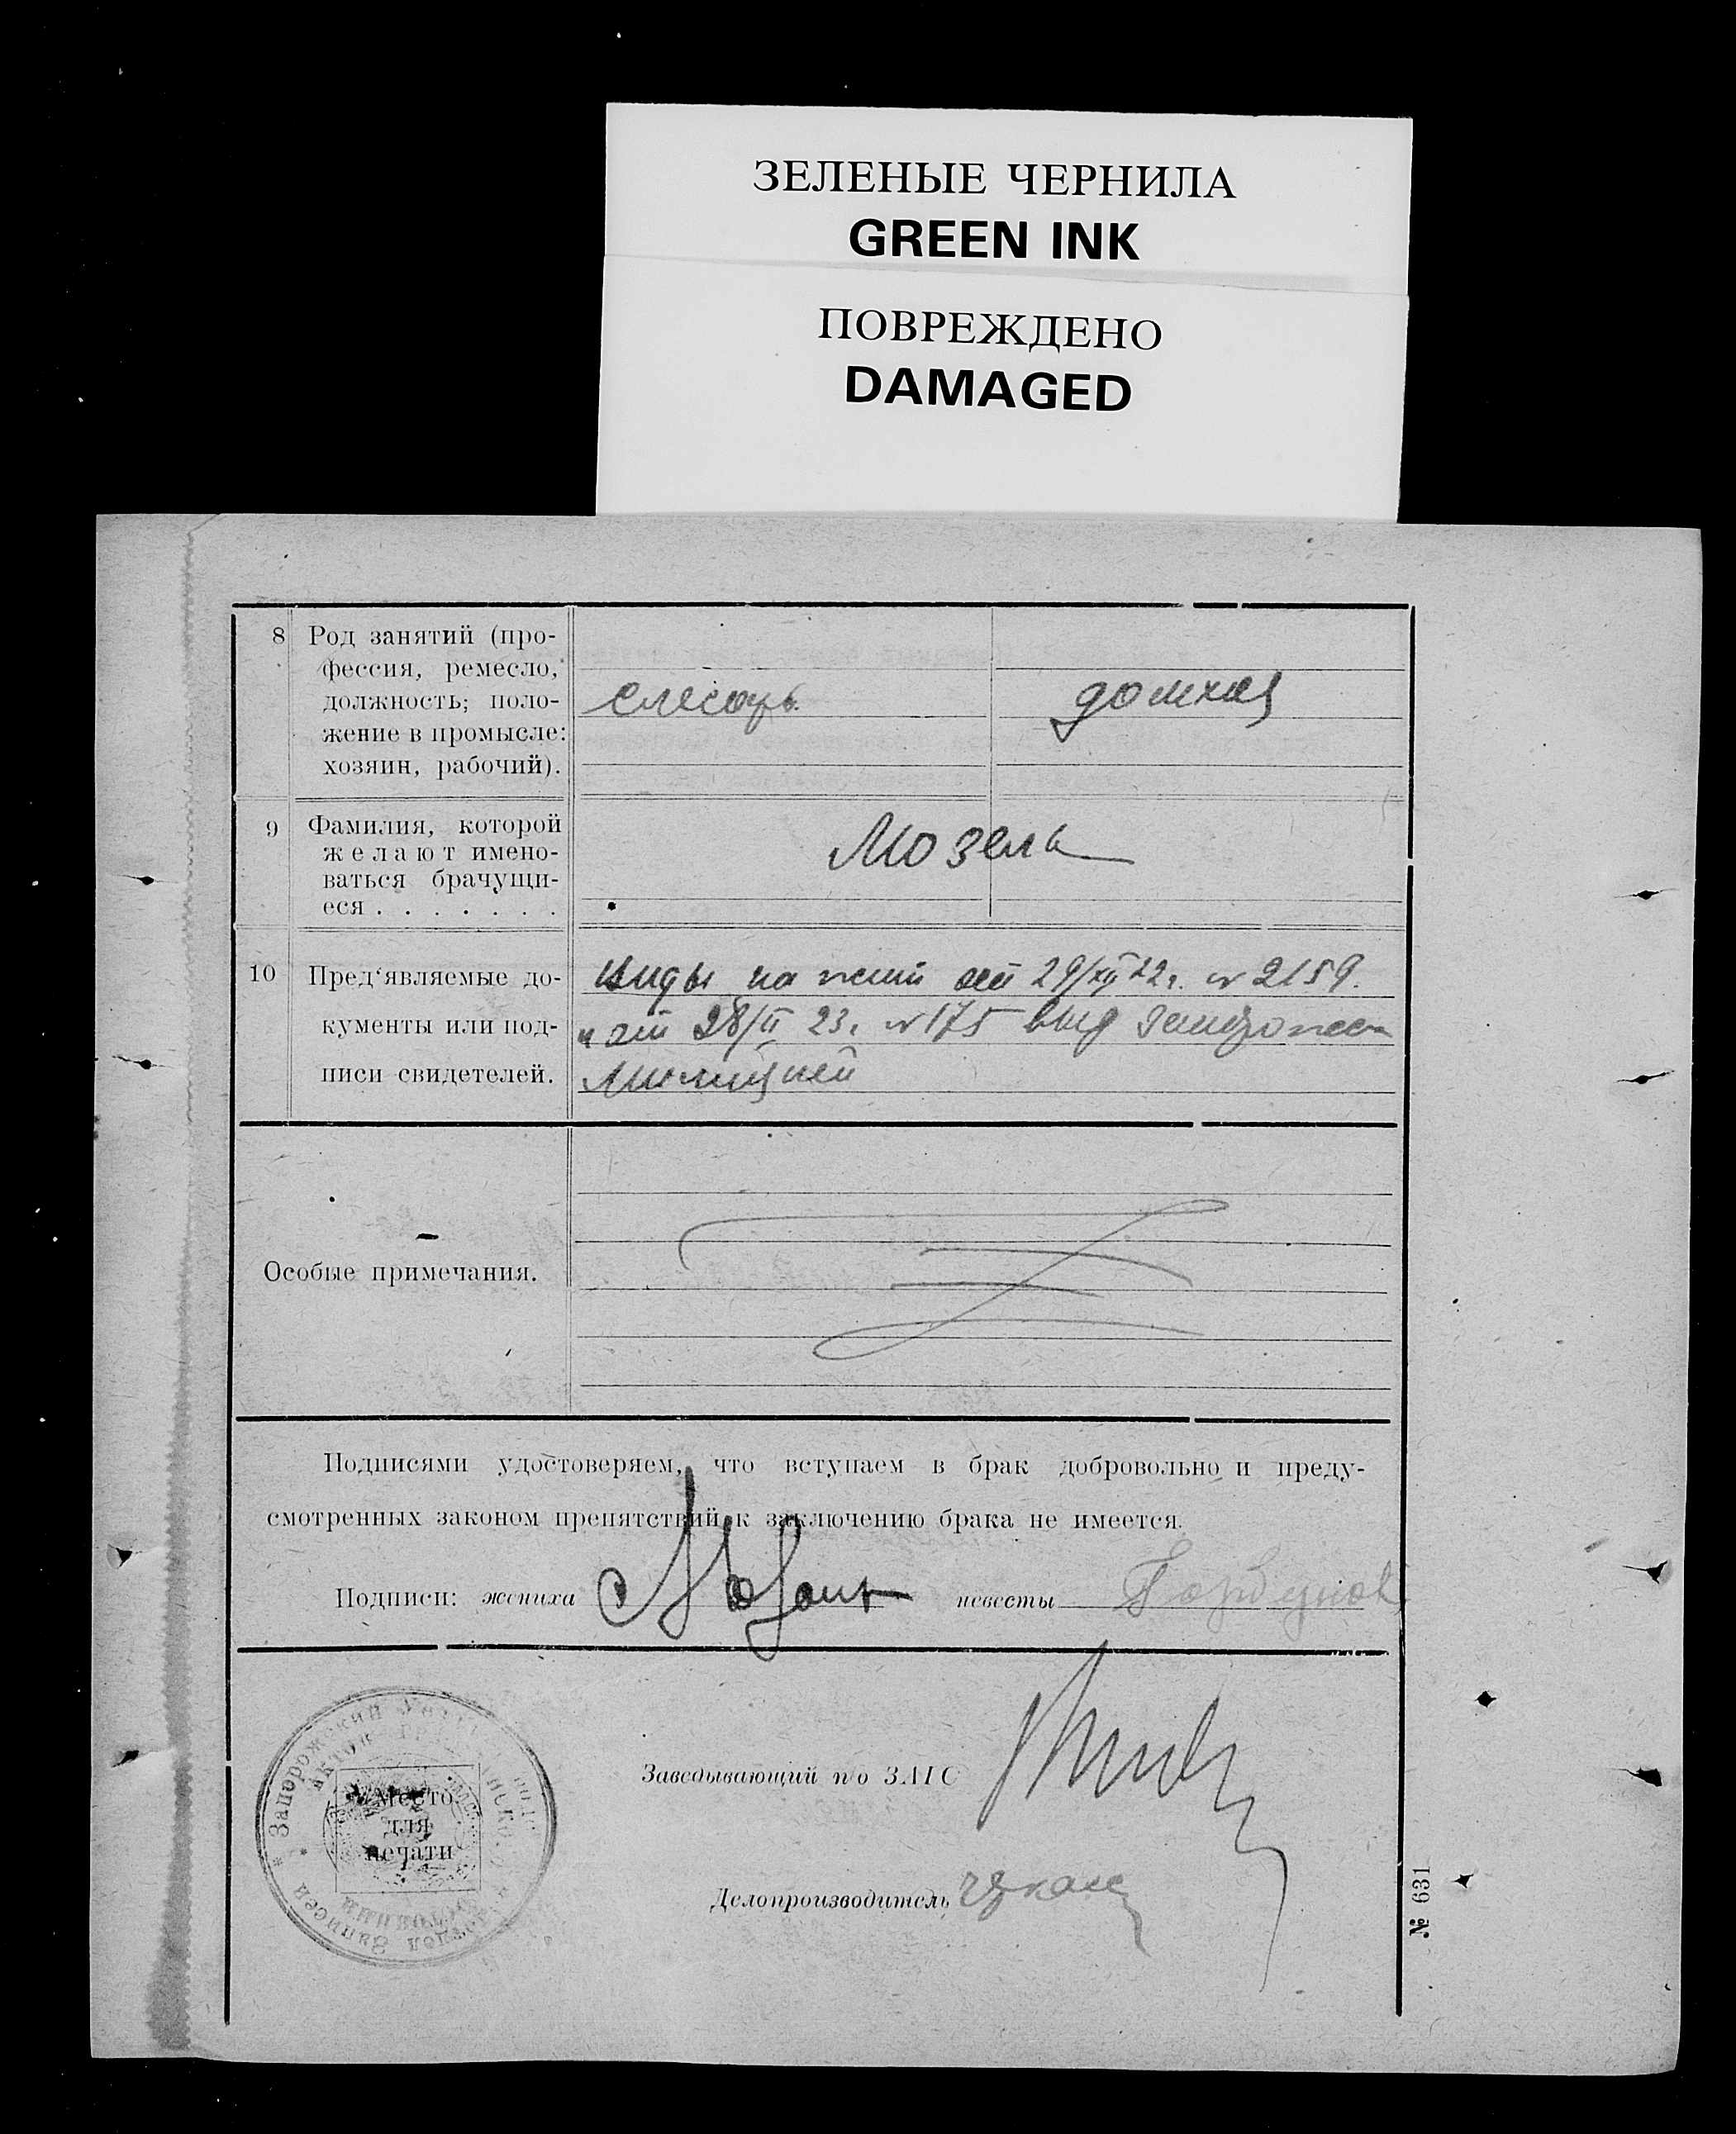 ЗЕЛЕНЫЕ ЧЕРНИЛА
GREEN INK
ПОВРЕЖДЕНО
DAMAGED
8 Род занятий (про-
фессия, ремесло,
должность; поло-
жение в промысле:
хозяин, рабочий).
слесарь
домхоз
9 Фамилия, которой
желают имено-
ваться брачущи-
еся . . . . . . .
Мозель
10 Пред'являемые до-
кументы или под-
писи свидетелей.
Виды на жит от 29/XII 22г. № 2159.
и от 28/II 23г. № 175 выд Запорожск
Милицией
Особые примечания.
Подписями удостоверяем, что вступаем в брак добровольно и преду-
смотренных законом препятствий к заключению брака не имеется.
Подписи: жениха невесты
Заведывающий п/о ЗАГС
Место
для
печати
Запорожский
Делопроизводитель
№ 631